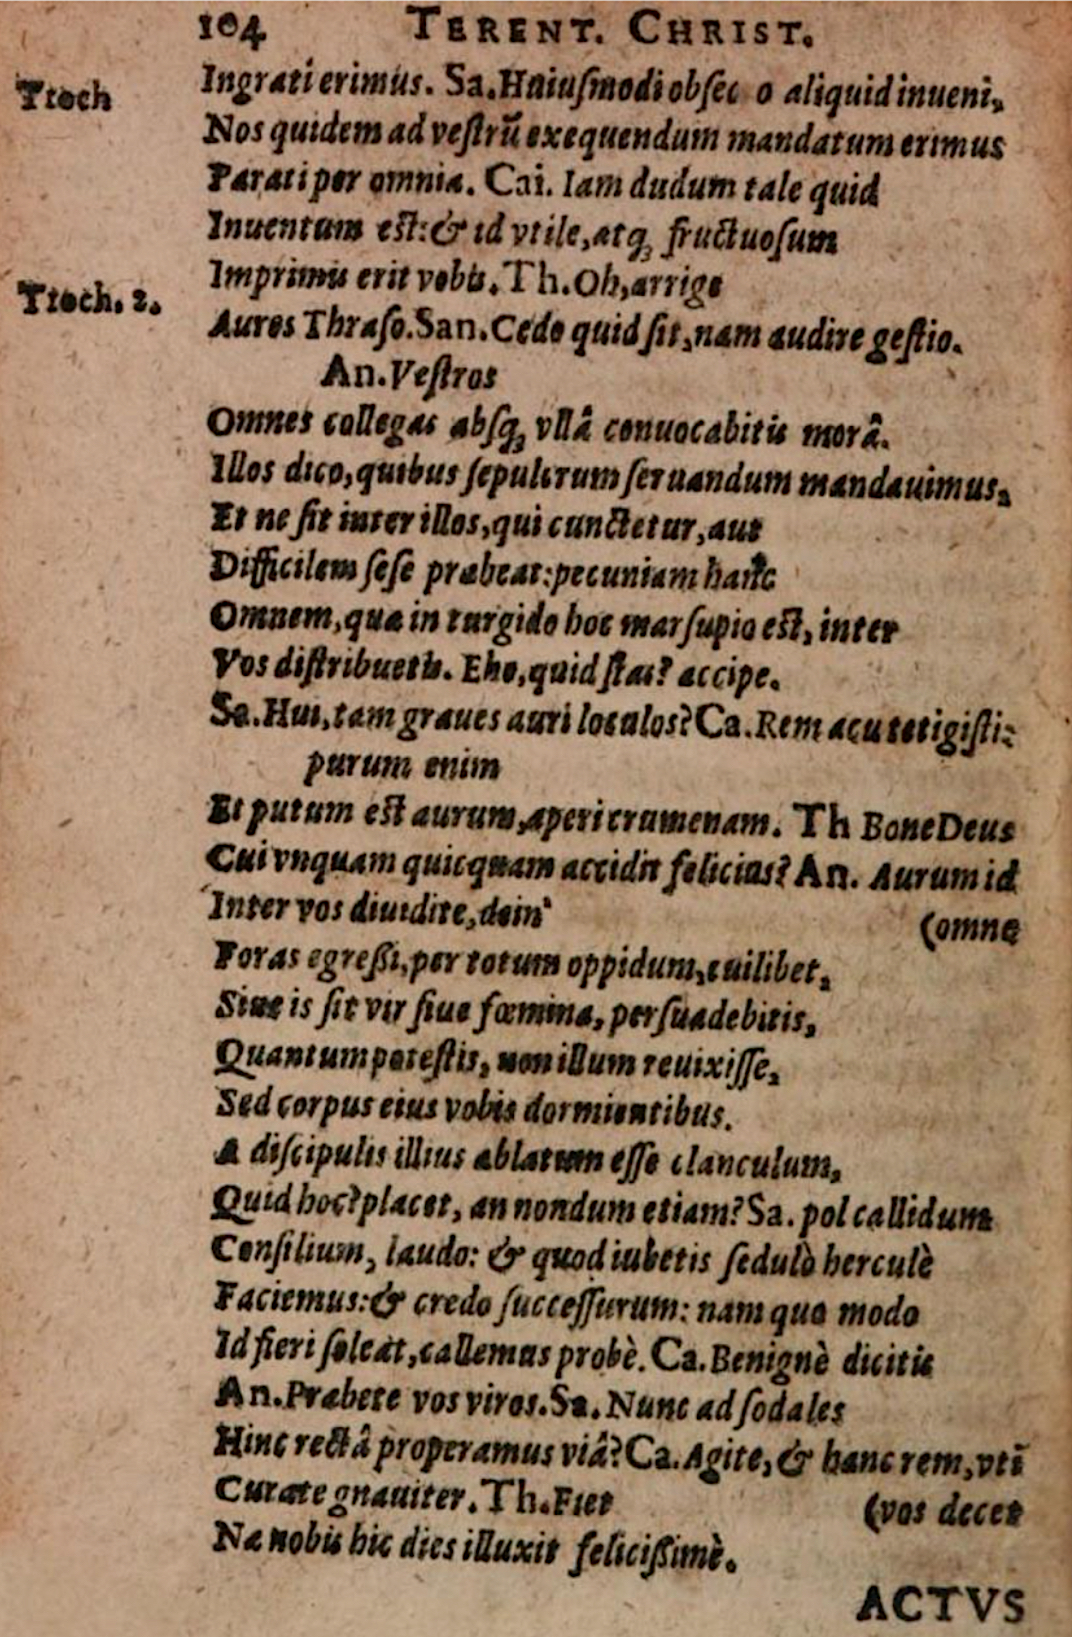 104 TERENT. CHRIST.
Troch
Ingrati erimus. Sa. Huiuſmodi obſec o aliquid inueni,
Nos quidem ad veſtrũ exequendum mandatum erimus
Parati per omnia. Cai. Iam dudum tale quid
Inuentum est: & id vtile, atq; fructuoſum
Imprimis erit vobis. Th. Oh, arrige
Troch. 2.
Aures Thraſo. San. Cedo quid ſit, nam audire geſtio.
An. Veſtros
Omnes collegas abſq; vllâ conuocabitis morâ.
Illos dico, quibus ſepulcrum ſeruandum mandauimus,
Et ne ſit inter illos, qui cunctetur, aut
Difficilem ſeſe præbeat: pecuniam hanc
Omnem, quæ in turgido hoc marſupio est, inter
Vos diſtribuetis. Eho, quid ſtas? accipe.
Sa. Hui, tam graues auri loculos? Ca. Rem acu tetigiſti:
purum enim
Et putum est aurum, aperi crumenam. Th Bone Deus
Cui vnquam quicquam accidit felicius? An. Aurum id
Inter vos diuidite, dein' (omne
Foras egreßi, per totum oppidum, cuilibet,
Siue is ſit vir ſiue fœmina, perſuadebitis,
Quantum poteſtis, non illum reuixiſſe,
Sed corpus eius vobis dormientibus.
A diſcipulis illius ablatum eſſe clanculum,
Quid hoc? placet, an nondum etiam? Sa. pol callidum
Conſilium, laudo: & quod iubetis ſedulò herculè
Faciemus: & credo ſucceſſurum: nam quo modo
Id fieri ſoleat, callemus probè. Ca. Benignè dicitis
An. Præbete vos viros. Sa. Nunc ad ſodales
Hinc rectâ properamus viâ? Ca. Agite, & hanc rem, vti
Curate gnauiter. Th. Fiet (vos decet
Næ nobis hic dies illuxit feliciſſimè.
ACTVS